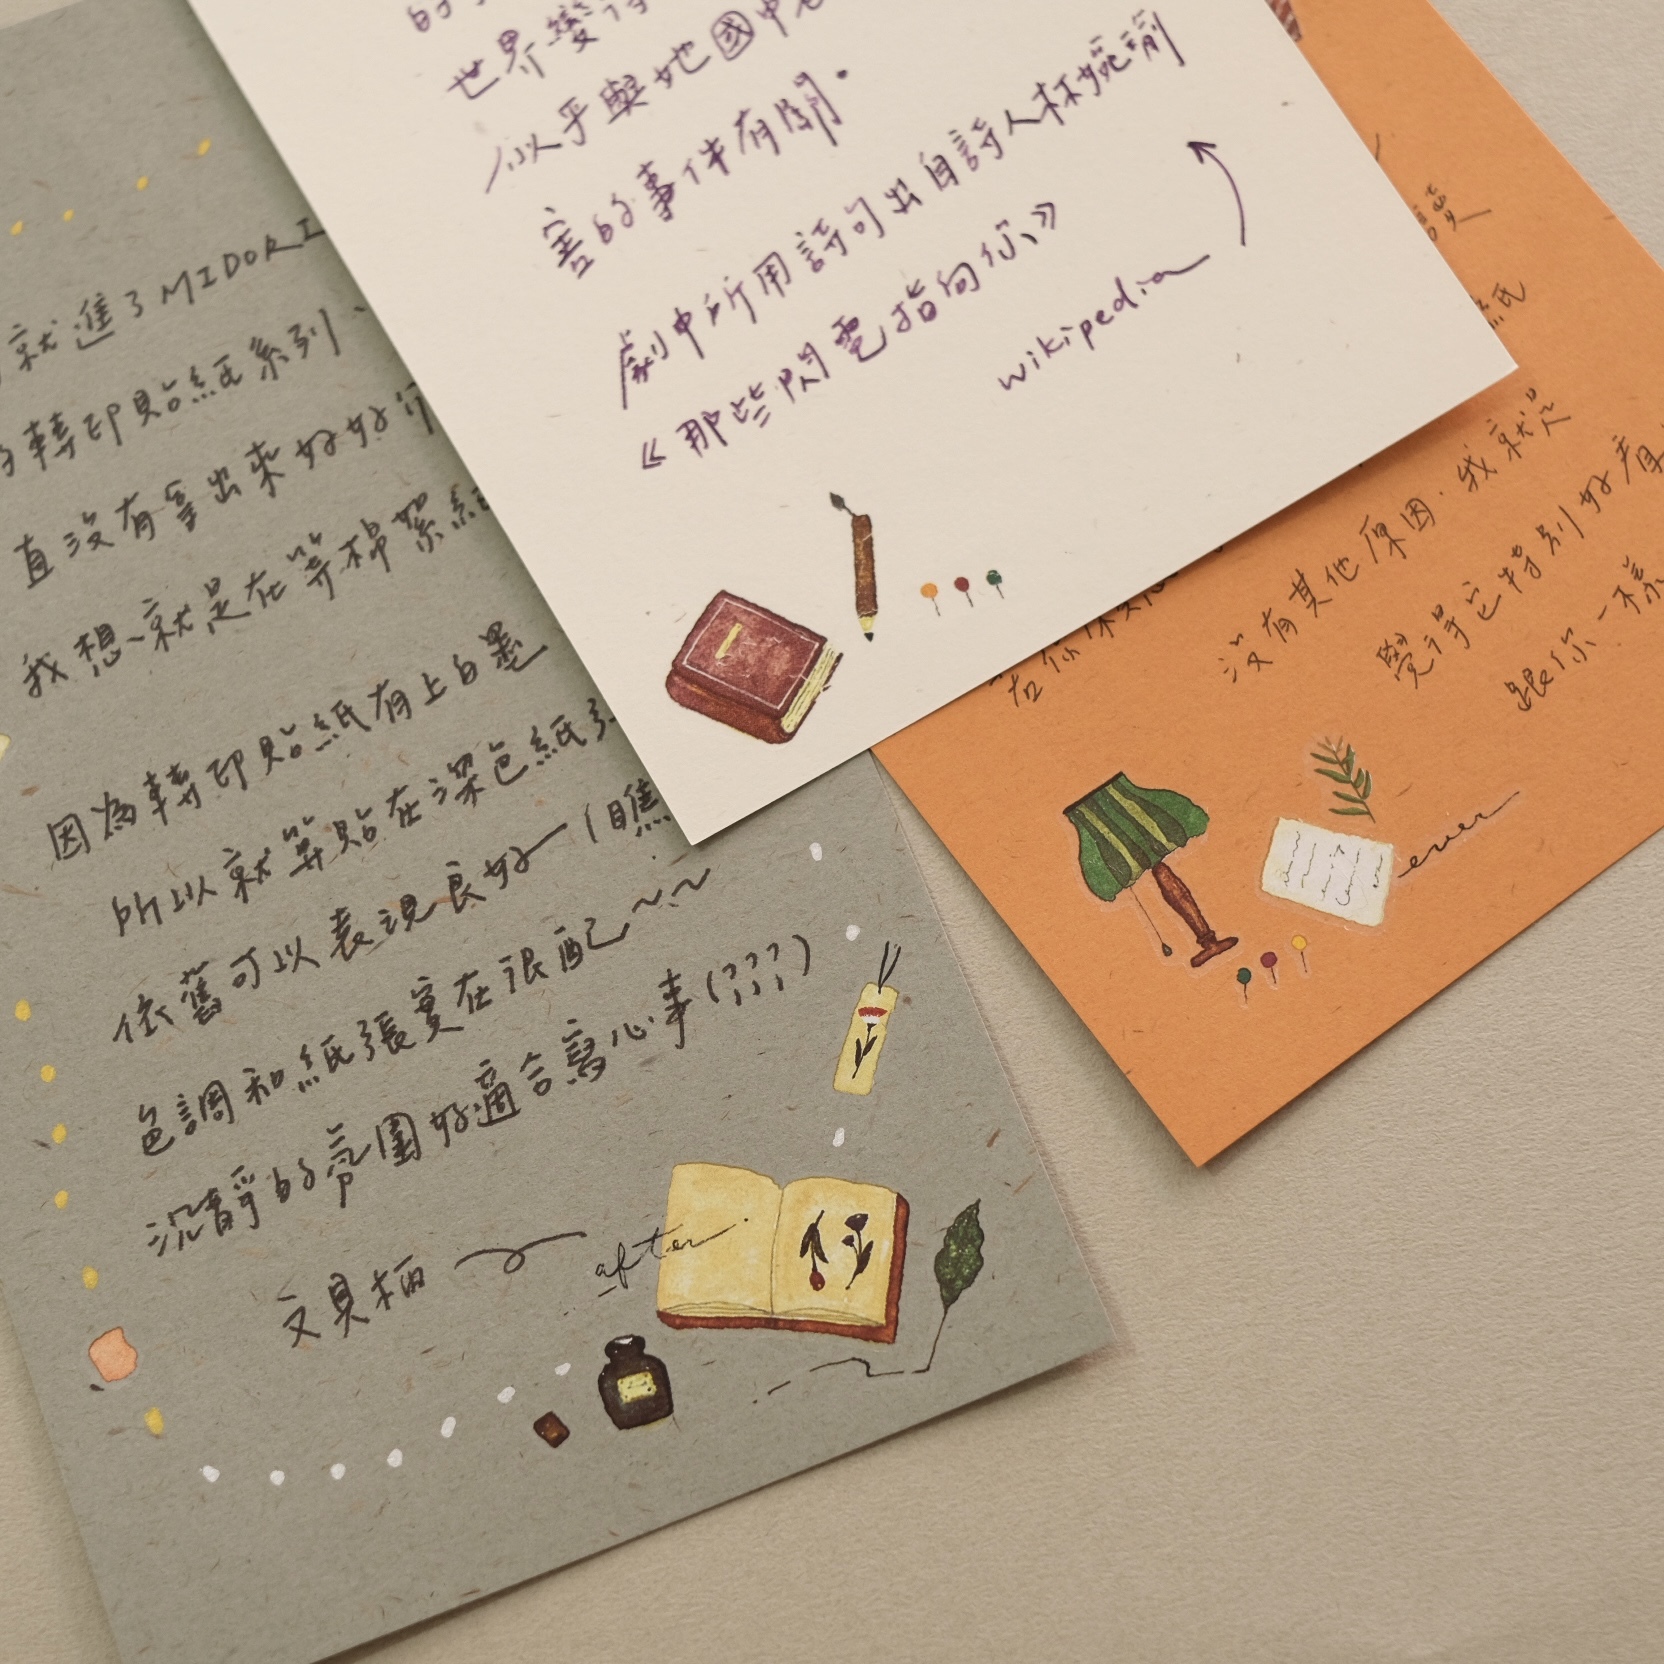 就進了MIDORI
轉印貼紙系列、
直沒有拿出來好好
我想就是在等棉絮紙
因為轉印貼紙有上白墨
所以就算貼在深色紙張
依舊可以表現良好－（瞧
色調和紙張實在很配~~
沉靜的氛圍好適合寫心事(???)
文具柄
after
世界變得
似乎與她國中
害的事件有關.
劇中所用詩句出自詩人林婉瑜
《那些閃電指向你》
wikipedia
紙
沒有其他原因.我就是
覺得它特別好看
跟你一樣
ever